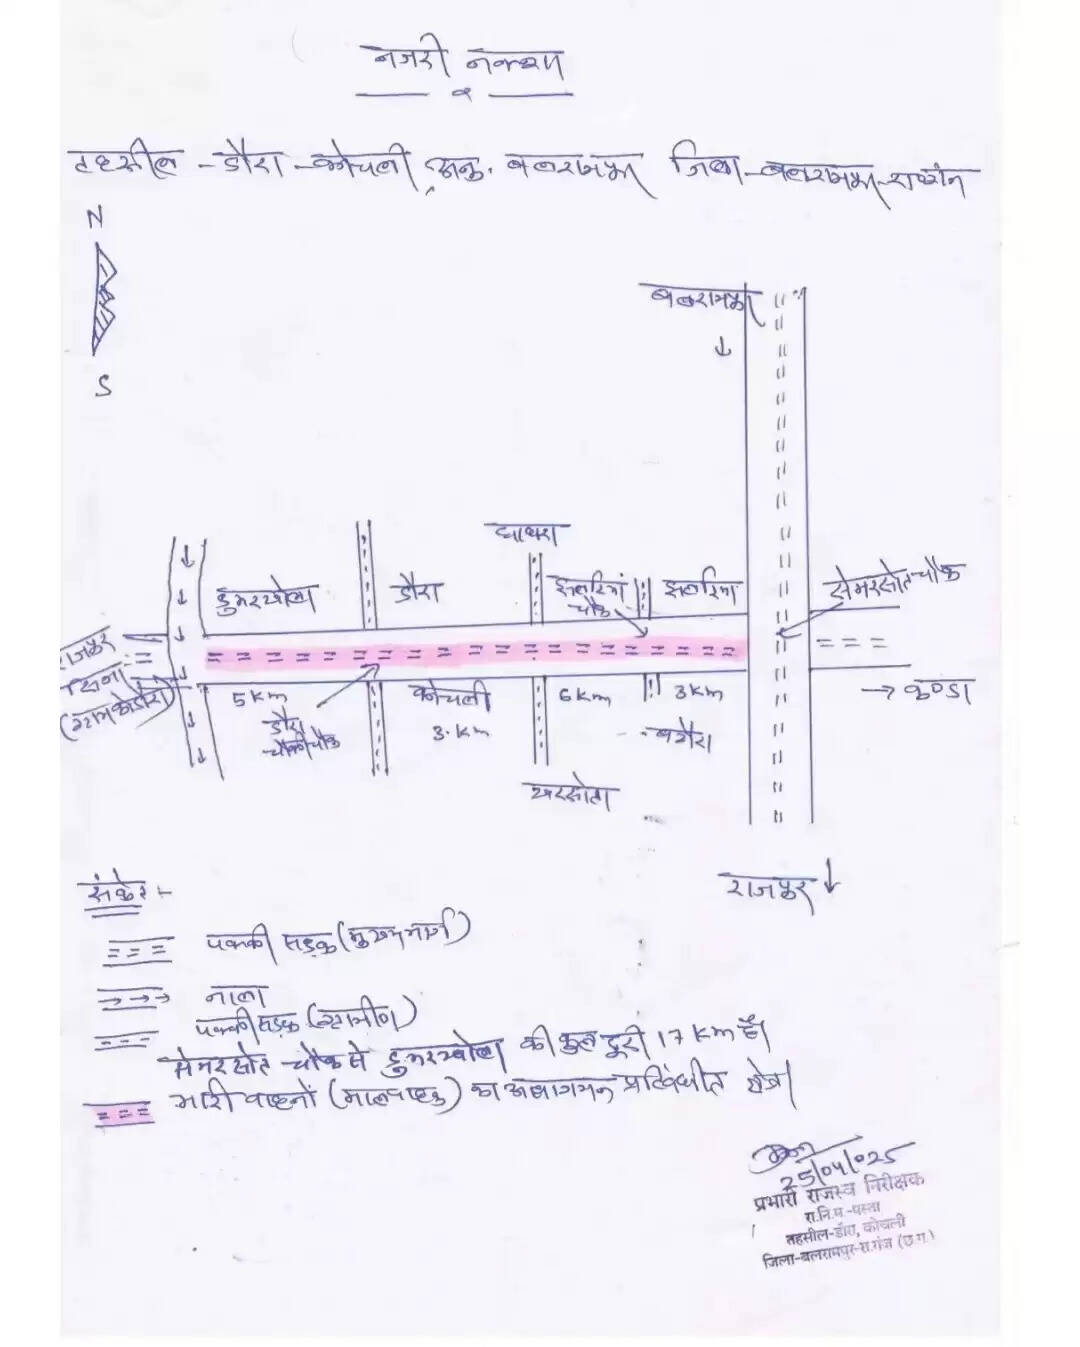 नजरी नक्शा
तहसील - डौरा - कोचली, अनु. बलरामपुर जिला - बलरामपुर-रा.गंज
N
S
बलरामपुर
घाघरा
डुमरखोला
डौरा
झलरियां
चौक
झलरिया
सेमरसोत चौक
राजपुर
5 Km
कोचली
6 Km
3 Km
→ कण्डा
डौरा
चौकी चौक
3. Km
बघौरा
खरसोता
राजपुर
संकेत :-
पक्की सड़क (मुख्यमार्ग)
नाला
पक्की सड़क (ग्रामीण)
सेमरसोत चौक से डुमरखोला की कुल दूरी 17 Km है।
भारी वाहनों (मालवाहक) का आवागमन प्रतिबंधीत क्षेत्र।
25/04/025
प्रभारी राजस्व निरीक्षक
रा.नि.म.-पस्ता
तहसील-डौरा, कोचली
जिला-बलरामपुर-रा.गंज (छ.ग.)